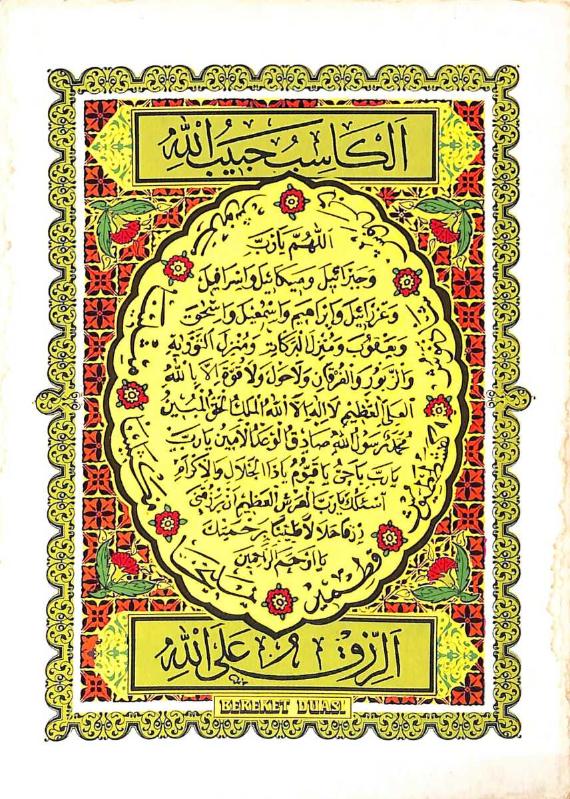 اَلْكَاسِبُ حَبِيبُ اللّٰهِ
اللهم يا رب
وجبرائيل وميكائيل واسرافيل
وعزرائيل وابراهيم واسمعيل واسحق
ويعقوب ومنزل البركات ومنزل التورية
والزبور والفرقان ولا حول ولا قوة الا بالله
العلي العظيم لا اله الا الله الملك الحق المبين
محمد رسول الله صادق الوعد الامين يا رب
يا رب يا حي يا قيوم يا ذا الجلال والاكرام
اسئلك يا رب العرش العظيم ان يرزقني
رزقا حلالا طيبا برحمتك
يا ارحم الراحمين
يمليخا
قطمير
اَلرِّزْقُ عَلَى اللّٰهِ
BEREKET DUASI